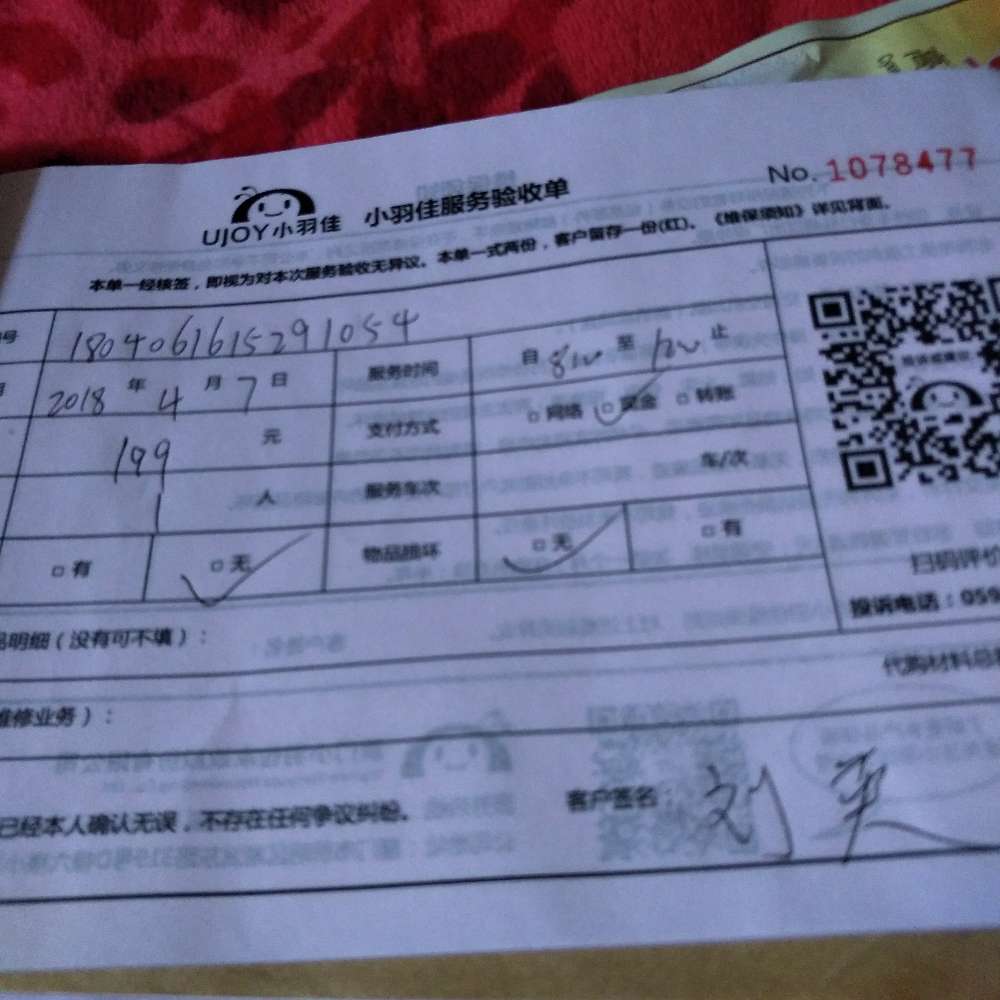 No. 1078477
UJOY小羽佳 小羽佳服务验收单
本单一经核签，即视为对本次服务验收无异议。本单一式两份，客户留存一份(红)。《维保须知》详见背面。
号 1804061615291054
2018年4月7日 服务时间 自 至 止
199元 支付方式 □网络 □现金 □转账
1人 服务车次 车/次
□有 □无 物品损坏 □无 □有
扫码评价
投诉电话：059
品明细（没有可不填）：
代购材料总
维修业务）：
已经本人确认无误，不存在任何争议纠纷。 客户签名 刘